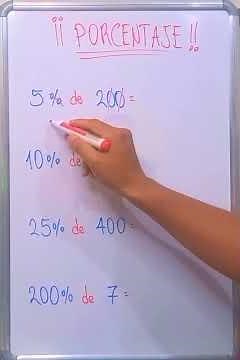 ¡¡ PORCENTAJE !!
5% de 200 =
10% de
25% de 400 =
200% de 7 =